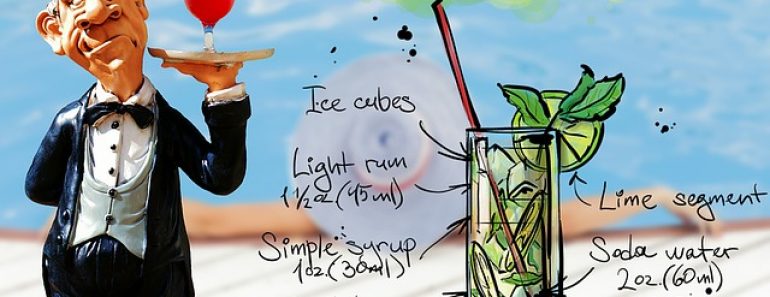 Ice cubes
Light rum
1 1/2 oz.(45ml)
Simple syrup
1oz.(30ml)
Lime segment
Soda water
2oz.(60ml)